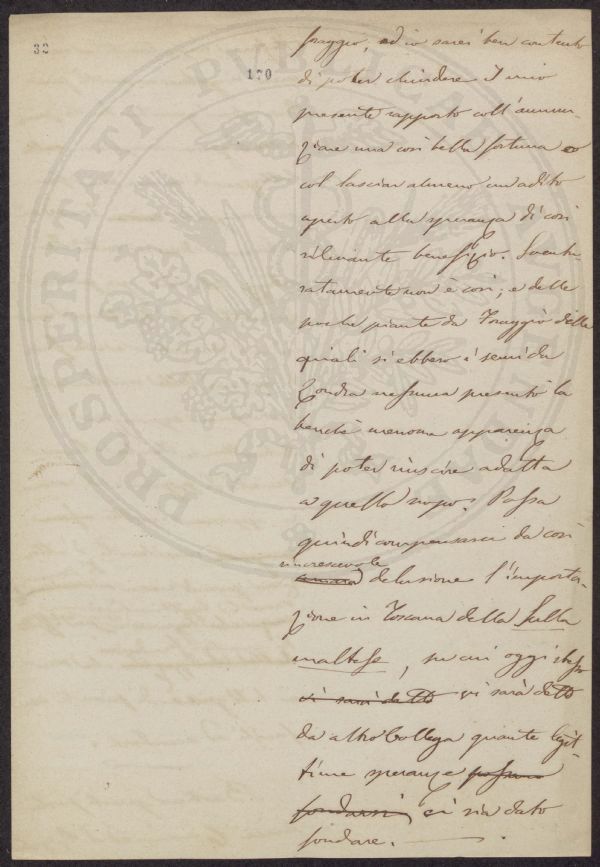 32
170
foraggio, ed io sarei ben contento
di poter chiudere il mio
presente rapporto coll'annun-
ziare una così bella fortuna o
col lasciar almeno un adito
aperto alla speranza di così
rilevante benefizio. Sventu-
ratamente non è così; e delle
poche piante da foraggio delle
quali si ebbero i semi da
Londra nessuna presentò la
benchè menoma apparenza
di poter riuscire adatta
a quello uopo. Possa
quindi compensarci da così
rincrescevole
amara delusione l'importa-
zione in Toscana della Sulla
maltese, su cui oggi stesso
vi sarà detto vi sarà detto
da altro Collega quante legit-
time speranze possano
fondarsi, ci sia dato
fondare.
PROSPERITATI PUBLICAE